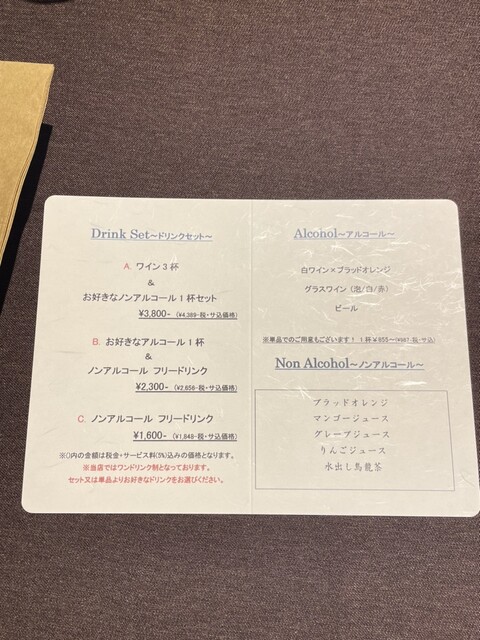 Drink Set～ドリンクセット～
A. ワイン3杯
&
お好きなノンアルコール1杯セット
¥3,800- (¥4,389-税・サ込価格)
B. お好きなアルコール1杯
&
ノンアルコール フリードリンク
¥2,300- (¥2,656-税・サ込価格)
C. ノンアルコール フリードリンク
¥1,600- (¥1,848-税・サ込価格)
※()内の金額は税金+サービス料(5%)込みの価格となります。
※当店ではワンドリンク制となっております。
セット又は単品よりお好きなドリンクをお選びください。
Alcohol～アルコール～
白ワイン×ブラッドオレンジ
グラスワイン (泡/白/赤)
ビール
※単品でのご用意もございます! 1杯¥855～(¥987-税・サ込)
Non Alcohol～ノンアルコール～
ブラッドオレンジ
マンゴージュース
グレープジュース
りんごジュース
水出し烏龍茶